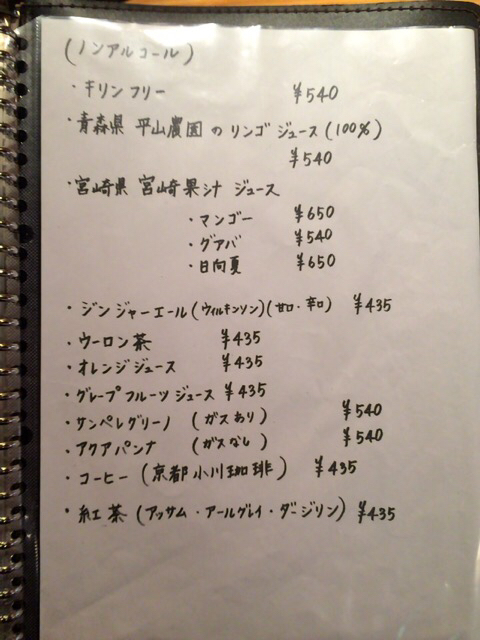 (ノンアルコール)
・キリンフリー ¥540
・青森県 平山農園のリンゴジュース(100%)
¥540
・宮崎県 宮崎果汁 ジュース
・マンゴー ¥650
・グアバ ¥540
・日向夏 ¥650
・ジンジャーエール(ウィルキンソン)(甘口・辛口) ¥435
・ウーロン茶 ¥435
・オレンジジュース ¥435
・グレープフルーツジュース ¥435
・サンペレグリーノ (ガスあり) ¥540
・アクアパンナ (ガスなし) ¥540
・コーヒー (京都小川珈琲) ¥435
・紅茶 (アッサム・アールグレイ・ダージリン) ¥435